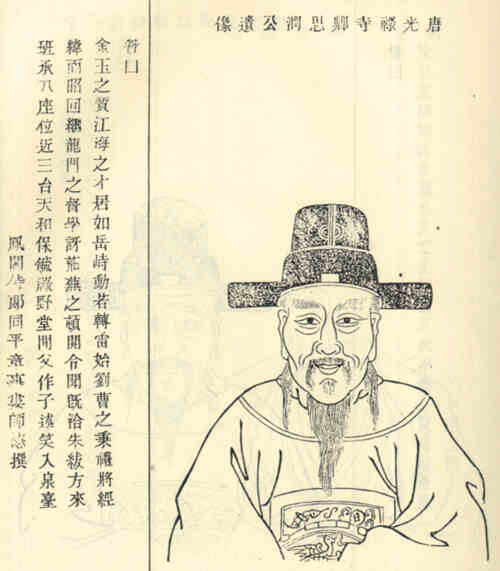 唐光祿寺卿思潤公遺像
贊曰
金玉之質江海之才居如岳峙動若轉雷始劉曹之秉禮將經
緯而昭回繼龍門之督學訝荒蕪之頓開令聞既洽朱紱方來
班承八座位近三台天和保毓綠野堂開父作子述笑入泉臺
鳳閣侍郎同平章事婁師德撰